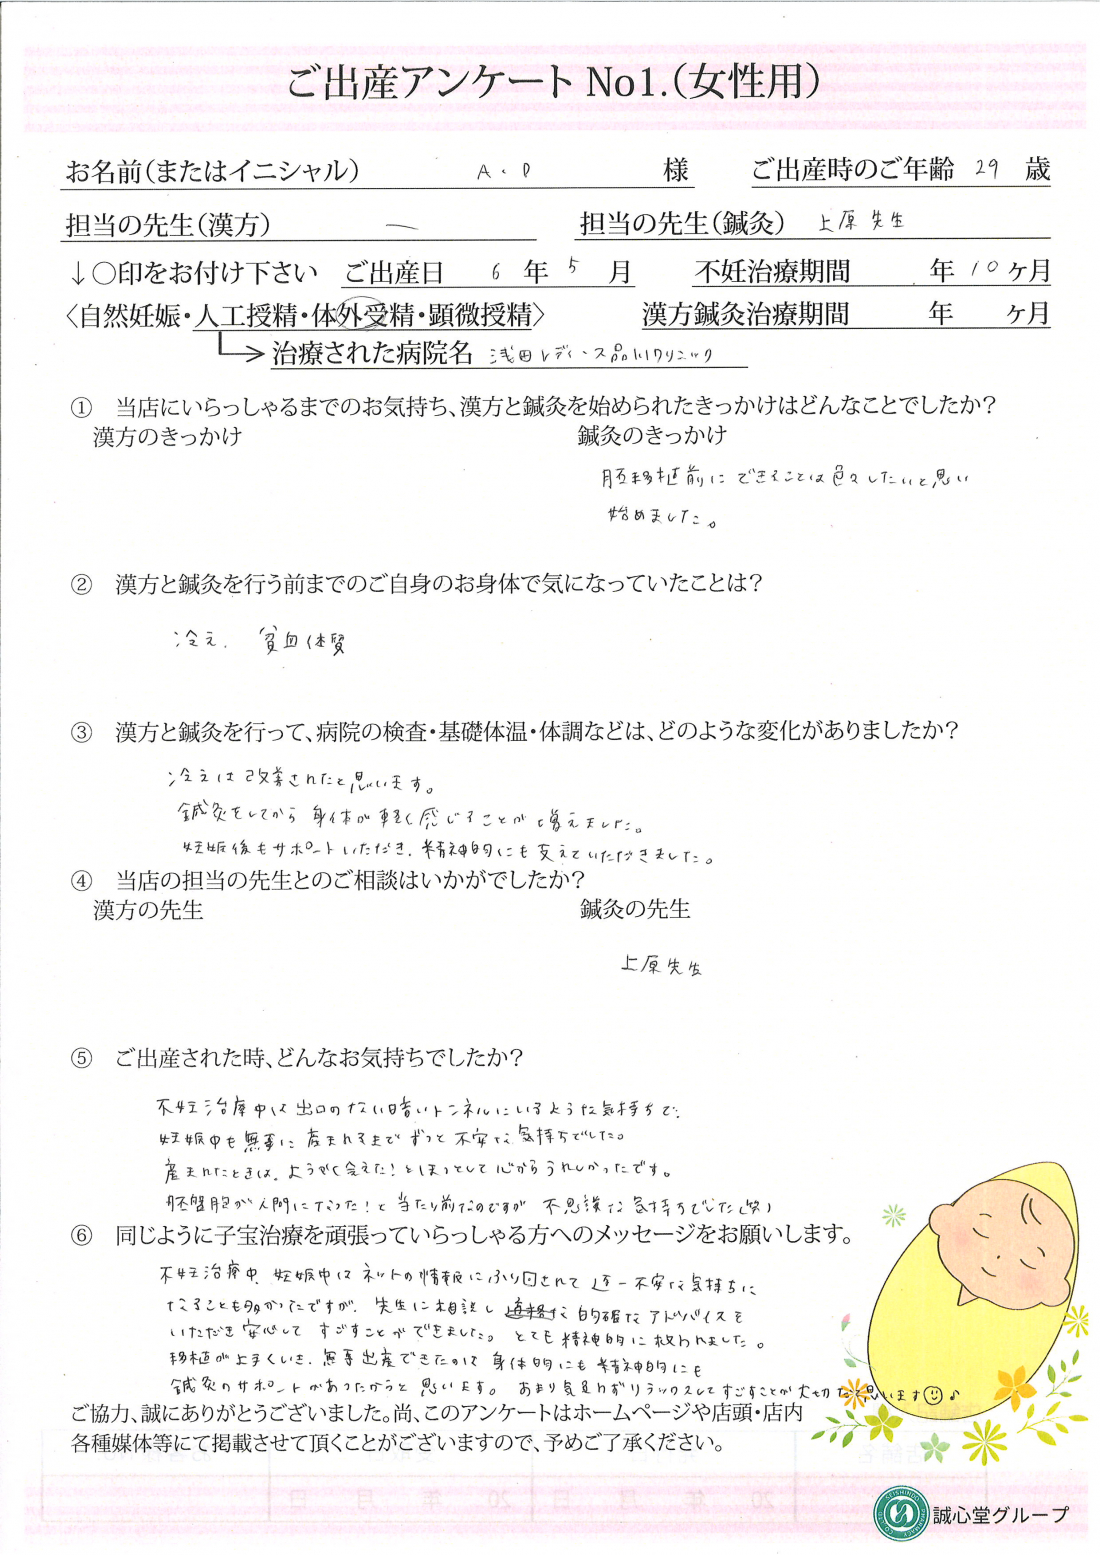 ご出産アンケート No1.（女性用）
お名前（またはイニシャル） A.D 様 ご出産時のご年齢 29 歳
担当の先生（漢方） ー 担当の先生（鍼灸） 上原先生
↓○印をお付け下さい ご出産日 6 年 5 月 不妊治療期間 年 10 ヶ月
〈自然妊娠・人工授精・体外受精・顕微授精〉 漢方鍼灸治療期間 年 ヶ月
治療された病院名 浅田レディース品川クリニック
① 当店にいらっしゃるまでのお気持ち、漢方と鍼灸を始められたきっかけはどんなことでしたか？
漢方のきっかけ 鍼灸のきっかけ
胚移植前にできることは色々したいと思い
始めました。
② 漢方と鍼灸を行う前までのご自身のお身体で気になっていたことは？
冷え、貧血体質
③ 漢方と鍼灸を行って、病院の検査・基礎体温・体調などは、どのような変化がありましたか？
冷えは改善されたと思います。
鍼灸をしてから身体が軽く感じることが増えました。
妊娠後もサポートいただき、精神的にも支えていただきました。
④ 当店の担当の先生とのご相談はいかがでしたか？
漢方の先生 鍼灸の先生
上原先生
⑤ ご出産された時、どんなお気持ちでしたか？
不妊治療中は出口のない暗いトンネルにいるような気持ちで、
妊娠中も無事に産まれるまでずっと不安な気持ちでした。
産まれたときは、ようやく会えた！とほっとして心からうれしかったです。
胚盤胞が人間になった！と当たり前なのですが不思議な気持ちでした（笑）
⑥ 同じように子宝治療を頑張っていらっしゃる方へのメッセージをお願いします。
不妊治療中、妊娠中はネットの情報にふり回されて逆に不安な気持ちに
なることも多かったですが、先生に相談し 的確なアドバイスを
いただき安心してすごすことができました。とても精神的に救われました。
移植が上手くいき、無事出産できたのは身体的にも精神的にも
鍼灸のサポートがあったからと思います。あまり気足わずリラックスしてすごすことが大切だと思います☺♪
ご協力、誠にありがとうございました。尚、このアンケートはホームページや店頭・店内
各種媒体等にて掲載させて頂くことがございますので、予めご了承ください。
誠心堂グループ